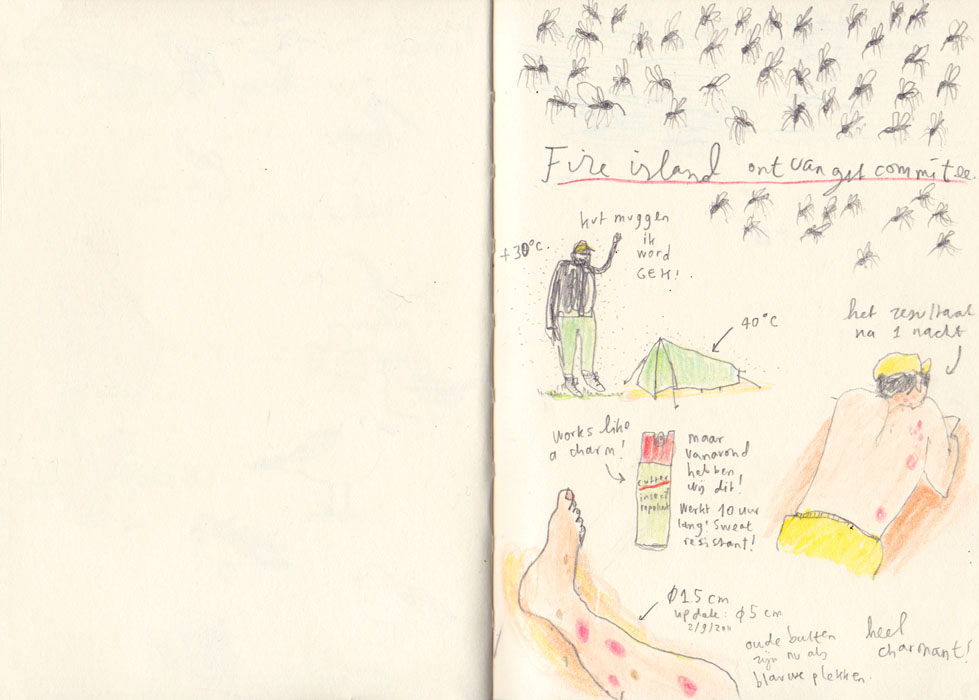 Fire island ontvangst committee.
+30°C.
kut muggen
ik
word
GEK!
40°C
het resultaat
na 1 nacht
works like
a charm!
cutter
insect
repellant
maar
vanavond
hebben
wij dit!
Werkt 10 uur
lang! Sweat
resistant!
Ø 1.5 cm
update: Ø 5 cm
2/9/2011
oude bulten
zijn nu als
blauwe plekken.
heel
charmant!